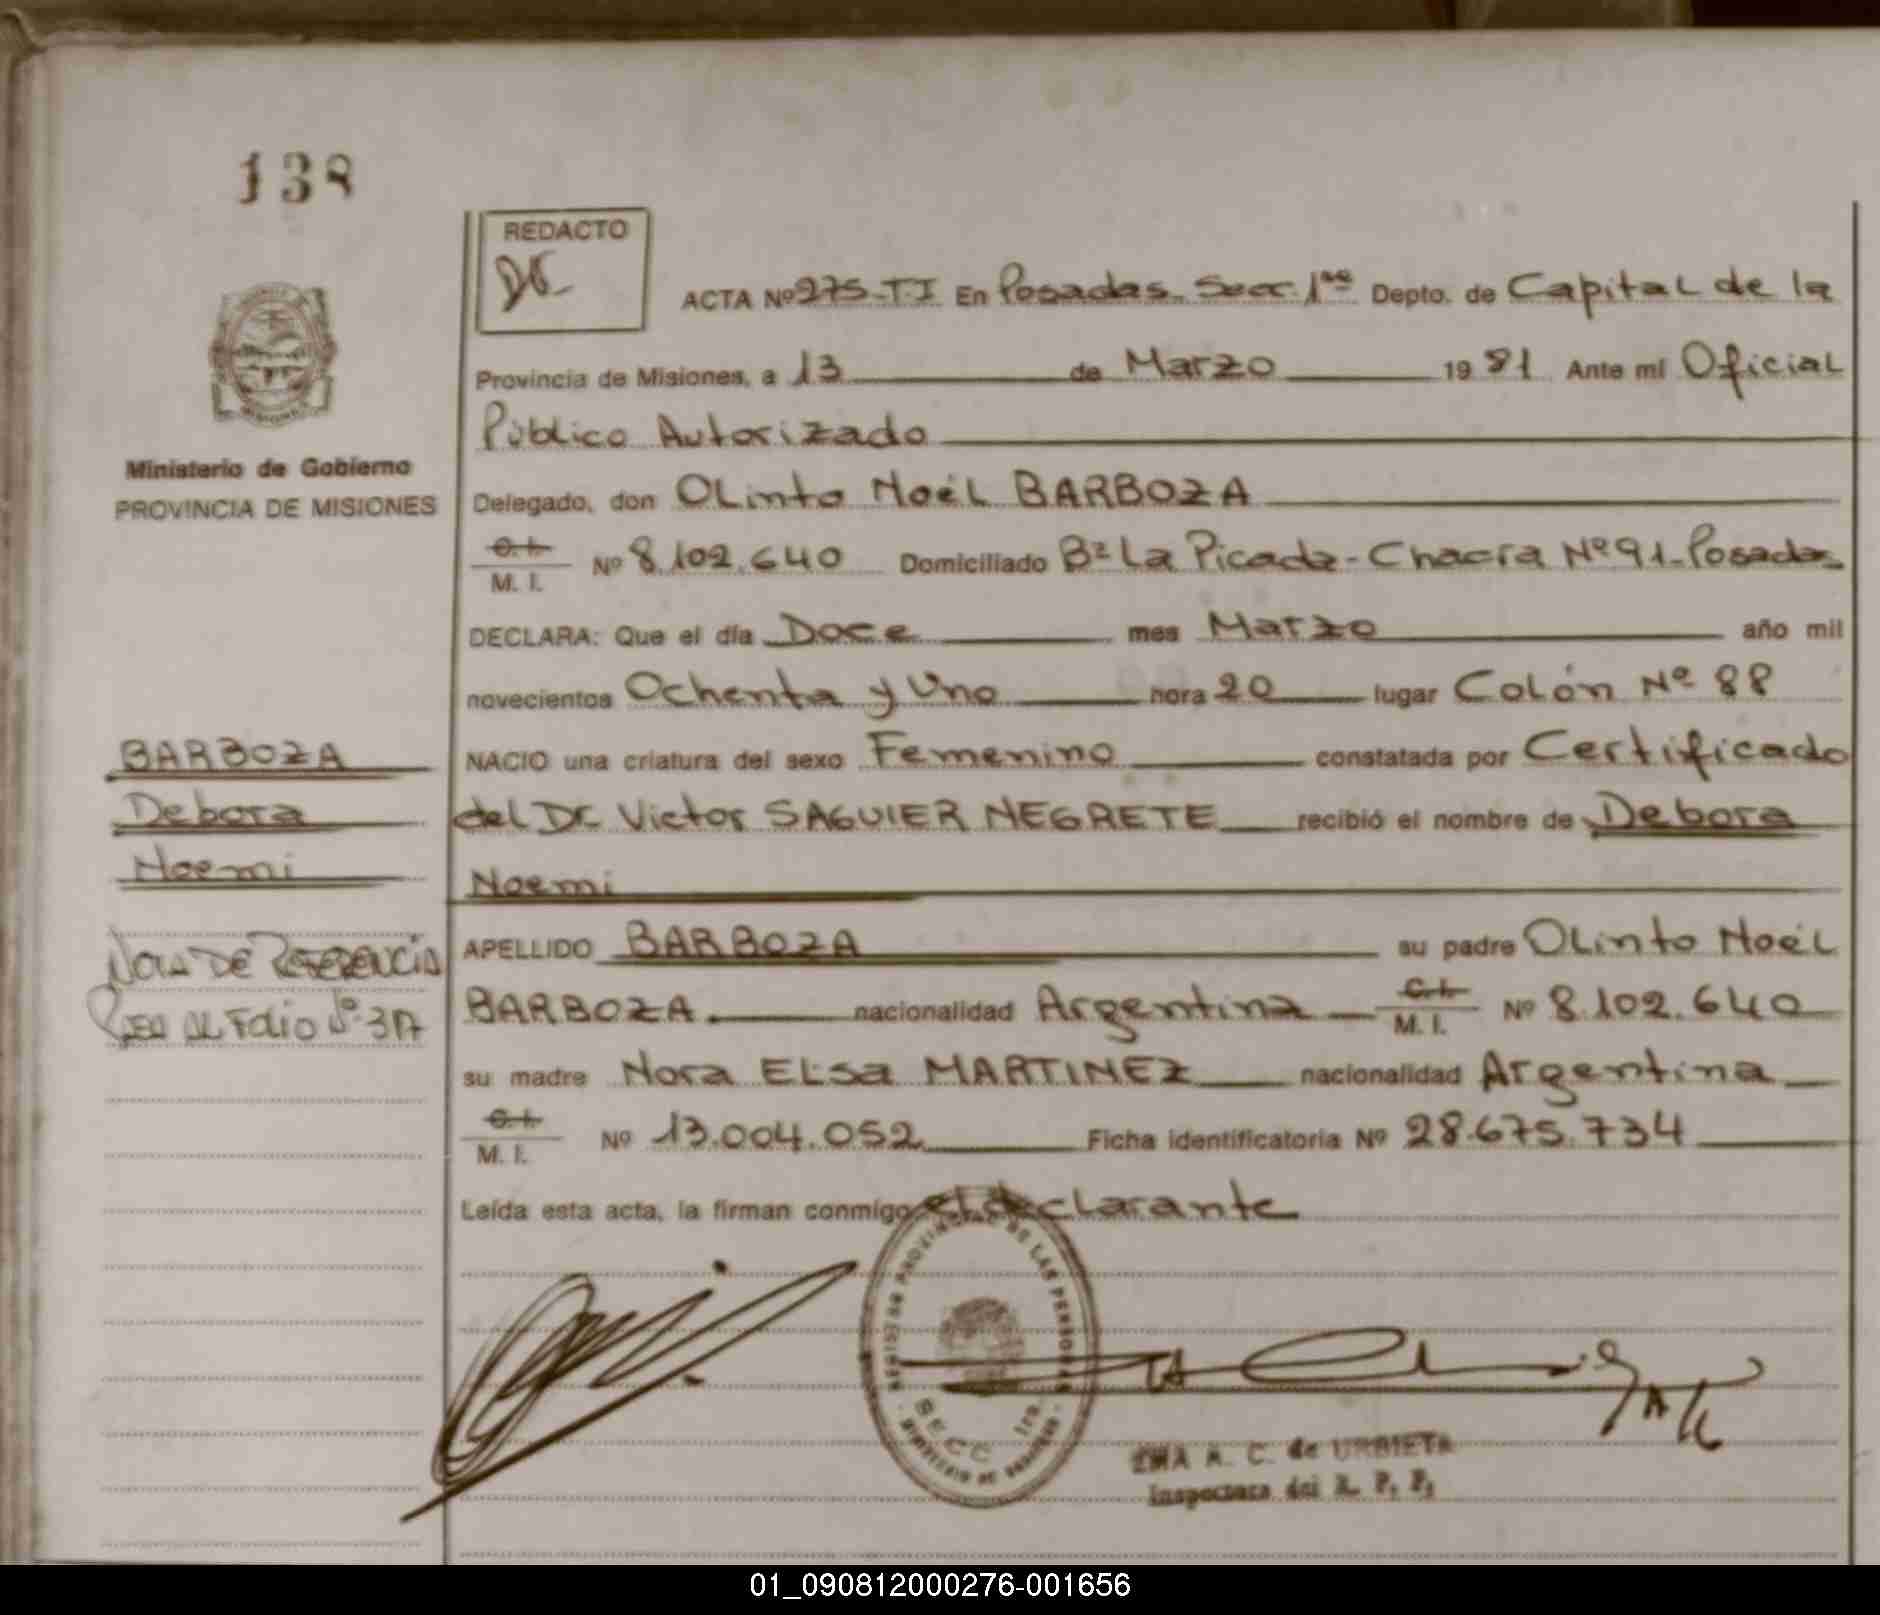 138
REDACTO
ACTA Nº 275-T.I En Posadas. Secc. 1ra Depto. de Capital de la
Provincia de Misiones, a 13 de Marzo 1981 Ante mi Oficial
Público Autorizado
Ministerio de Gobierno
PROVINCIA DE MISIONES
Delegado, don OLinto Noél BARBOZA
C.I.
M. I. Nº 8.102.640 Domiciliado Bº La Picada - Chacra Nº 91 - Posadas
DECLARA: Que el día Doce mes Marzo año mil
novecientos Ochenta y Uno hora 20 lugar Colón Nº 88
BARBOZA
Debora
Noemi
NACIO una criatura del sexo Femenino constatada por Certificado
del Dr. Victor SAGUIER NEGRETE recibió el nombre de Debora
Noemi
NOTA DE REFERENCIA
AL Folio Nº
APELLIDO BARBOZA su padre OLinto Noél
BARBOZA nacionalidad Argentina C.I.
M. I. Nº 8.102.640
su madre Nora ELsa MARTINEZ nacionalidad Argentina
C.I.
M. I. Nº 13.004.052 Ficha identificatoria Nº 28.675.734
Leída esta acta, la firman conmigo el declarante
PROVINCIAL DE LAS PERSONAS
SECC. 1ra.
MINISTERIO DE GOBIERNO
A. C. de URBIETA
Inspectora del R. P. P.
01_090812000276-001656